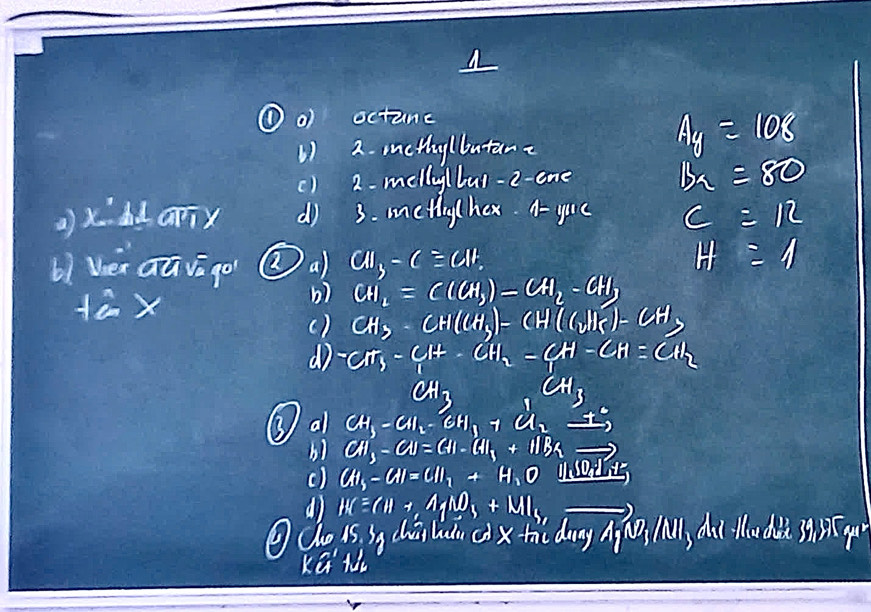 1
① a) octane
b) 2-methylbutane
c) 2-methylbut-2-ene
d) 3-methylhex-1-yne
Ag = 108
Br = 80
C = 12
H = 1
a) CTPT X
b) Viết CTCT và gọi
tên X
② a) CH₃ - C ≡ CH.
b) CH₂ = C(CH₃) - CH₂ - CH₃
c) CH₃ - CH(CH₃) - CH(C₂H₅) - CH₃
d) CH₃ - CH - CH₂ - CH - CH = CH₂
CH₃ CH₃
③ a) CH₃ - CH₂ - CH₃ + Cl₂ t°→
b) CH₃ - CH = CH - CH₃ + HBr →
c) CH₃ - CH = CH₂ + H₂O H₂SO₄đ, t°→
d) HC ≡ CH + AgNO₃ + NH₃ →
④ Cho 15,3g chất hữu cơ X tác dụng AgNO₃/NH₃ dư thu được 39,375 gam
kết tủa